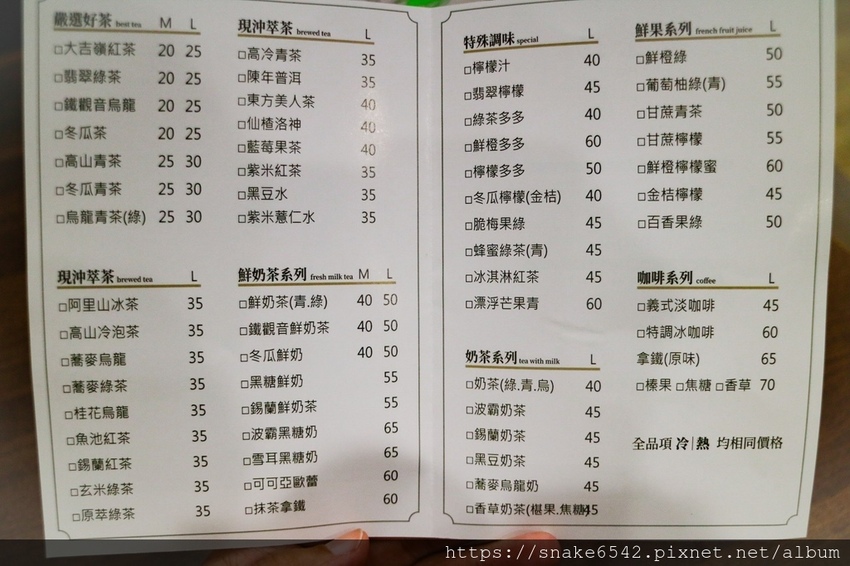 嚴選好茶 best tea M L
□大吉嶺紅茶 20 25
□翡翠綠茶 20 25
□鐵觀音烏龍 20 25
□冬瓜茶 20 25
□高山青茶 25 30
□冬瓜青茶 25 30
□烏龍青茶(綠) 25 30
現沖萃茶 brewed tea L
□高冷青茶 35
□陳年普洱 35
□東方美人茶 40
□仙楂洛神 40
□藍莓果茶 40
□紫米紅茶 35
□黑豆水 35
□紫米薏仁水 35
現沖萃茶 brewed tea L
□阿里山冰茶 35
□高山冷泡茶 35
□蕎麥烏龍 35
□蕎麥綠茶 35
□桂花烏龍 35
□魚池紅茶 35
□錫蘭紅茶 35
□玄米綠茶 35
□原萃綠茶 35
鮮奶茶系列 fresh milk tea M L
□鮮奶茶(青.綠) 40 50
□鐵觀音鮮奶茶 40 50
□冬瓜鮮奶 40 50
□黑糖鮮奶 55
□錫蘭鮮奶茶 55
□波霸黑糖奶 65
□雪耳黑糖奶 65
□可可亞歐蕾 60
□抹茶拿鐵 60
特殊調味 special L
□檸檬汁 40
□翡翠檸檬 45
□綠茶多多 40
□鮮橙多多 60
□檸檬多多 50
□冬瓜檸檬(金桔) 40
□脆梅果綠 45
□蜂蜜綠茶(青) 45
□冰淇淋紅茶 45
□漂浮芒果青 60
奶茶系列 tea with milk L
□奶茶(綠.青.烏) 40
□波霸奶茶 45
□錫蘭奶茶 45
□黑豆奶茶 45
□蕎麥烏龍奶 45
□香草奶茶(椹果.焦糖)45
鮮果系列 french fruit juice L
□鮮橙綠 50
□葡萄柚綠(青) 55
□甘蔗青茶 50
□甘蔗檸檬 55
□鮮橙檸檬蜜 60
□金桔檸檬 45
□百香果綠 50
咖啡系列 coffee L
□義式淡咖啡 45
□特調冰咖啡 60
拿鐵(原味) 65
□榛果 □焦糖 □香草 70
全品項 冷|熱 均相同價格
https://snake6542.pixnet.net/album